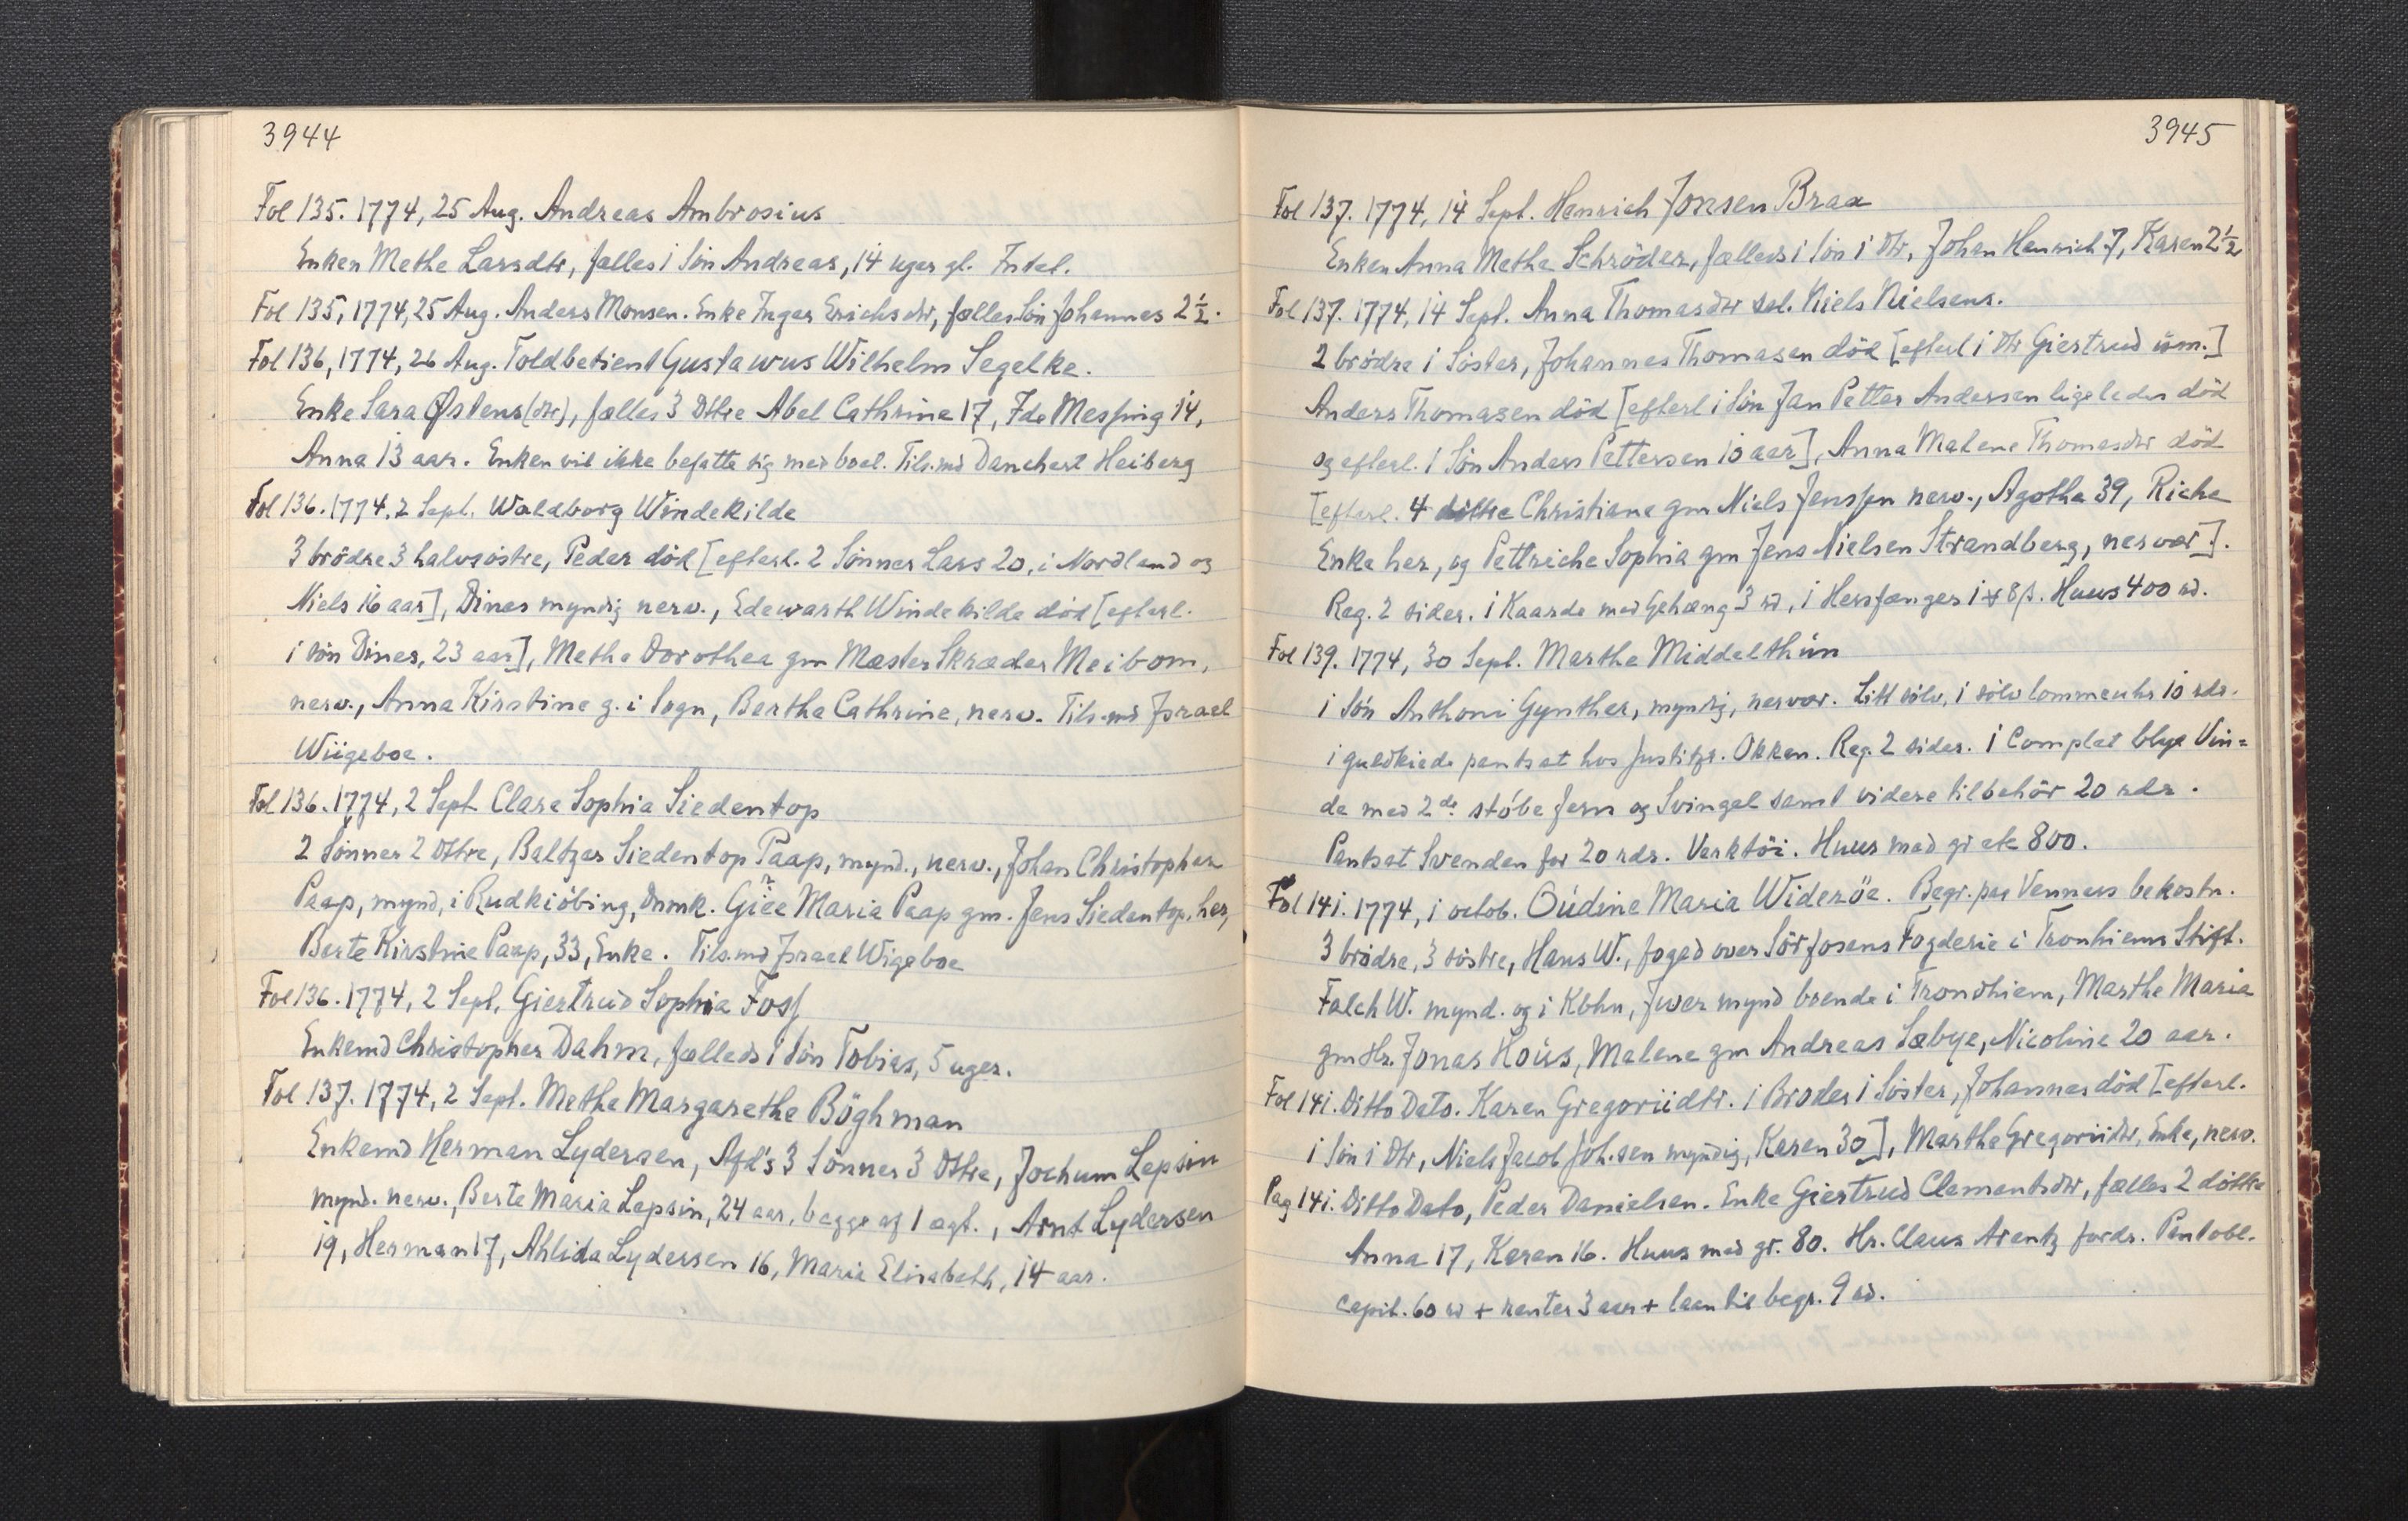 3944
Fol 135. 1774, 25 Aug. Andreas Ambrosius
Enken Methe Larsdtr, fælles 1 Sön Andreas, 14 uger gl. Intet.
Fol 135, 1774, 25 Aug. Anders Monsen. Enke Inger Erichsdtr, fælles Sön Johannes 2 1/2.
Fol 136, 1774, 26 Aug. Toldbetient Gustawus Wilhelm Segelke.
Enke Sara Østens(dtr), fælles 3 Dttre Abel Cathrine 17, Ide Messing 14,
Anna 13 aar. Enken vil ikke befatte sig med boet. Tils.md Danchert Heiberg
Fol 136. 1774. 2 Sept. Waldborg Windekilde
3 brödre 3 halvsöstre, Peder död [efterl. 2 Sönner Lars 20, i Nordland og
Niels 16 aar], Dines myndig nerv., Edewarth Windekilde död [efterl.
1 sön Dines, 23 aar], Methe Dorothea gm Mæster Skræder Meibom,
nerv., Anna Kirstine g. i Sogn, Berthe Cathrine, nerv. Tils.md Israel
Wiigeboe.
Fol 136. 1774, 2 Sept Clara Sophia Siedentop
2 Sönner 2 Dttre, Baltzer Siedentop Paap, mynd., nerv., Johan Christopher
Paap, mynd, i Rudkiöbing, Dnmk. Giee Maria Paap gm. Jens Siedentop, her,
Berte Kirstine Paap, 33, Enke. Tils.md Israel Wigeboe
Fol 136. 1774, 2 Sept. Giertrud Sophia Foss
Enkemd Christopher Dahm, fælleds 1 Sön Tobias, 5 uger.
Fol 137. 1774, 2 Sept. Methe Margarethe Böghman
Enkemd Herman Lydersen, Afd's 3 Sönner 3 Dttre, Jochum Lepsin
mynd. nerv., Berte Maria Lepsin, 24 aar, begge af 1 ægt., Arnt Lydersen
19, Herman 17, Ahlida Lydersen 16, Maria Elisabeth, 14 aar.
3945
Fol 137. 1774, 14 Sept. Henrich Jonsen Braa
Enken Anna Methe Schröder, fælleds 1 Sön 1 Dtr, Johan Henrich 7, Karen 2 1/2
Fol 137. 1774, 14 Sept. Anna Thomasdtr sal. Niels Nielsens.
2 brödre 1 Söster, Johannes Thomasen död [efterl 1 Dtr Giertrud üm.]
Anders Thomasen död [efterl 1 Sön Jan Petter Andersen ligeledes död
og efterl. 1 Sön Anders Pettersen 10 aar], Anna Malene Thomasdtr död
[efterl. 4 döttre Christiane gm Niels Jenssen nerv., Agothe 39, Riche
Enke her, og Pettriche Sophia gm Jens Nielsen Strandberg, nervær].
Reg. 2 sider. 1 Kaarde med Gehæng 3 rd, 1 Hersfænger 1 # 8 β. Huus 400 rd.
Fol 139. 1774, 30 Sept. Marthe Middelthün
1 Sön Anthoni Gynther, myndig, nervær. Litt sölv, 1 sölv lommeuhr 10 rdr.
1 guldkiede pantsat hos Justitzr. Okken. Reg. 2 sider. 1 Complet blye Vin=
de med 2de stöbe Jern og Svingel samt videre tilbehör 20 rdr.
Pantsat Svenden for 20 rdr. Verktöi. Huus med gr etc 800.
Fol 141. 1774, 1 octob. Oüdine Maria Wideröe. Begr. paa Venners bekostn.
3 brödre, 3 söstre, Hans W., foged over Sörfosens Fogderie i Tronhiems Stift.
Falch W. mynd. og i Kbhn, Iwer mynd boende i Trondhiem, Marthe Maria
gm Hr. Jonas Hoüs, Malene gm Andreas Sæbye, Nicoline 20 aar.
Fol 141. Ditto Dato. Karen Gregoriidtr. 1 Broder 1 Söster, Johannes död [efterl.
1 Sön 1 Dtr, Niels Jacob Joh.sen myndig, Karen 30], Marthe Gregoriidtr, Enke, nerv.
Pag 141. Ditto Dato, Peder Danielsen. Enke Giertrud Clementsdtr, fælles 2 döttre
Anna 17, Karen 16. Huus med gr. 80. Hr. Claus Arentz fordr. Pantobl.
capit. 60 rd + renter 3 aar + laan til begr. 9 rd.